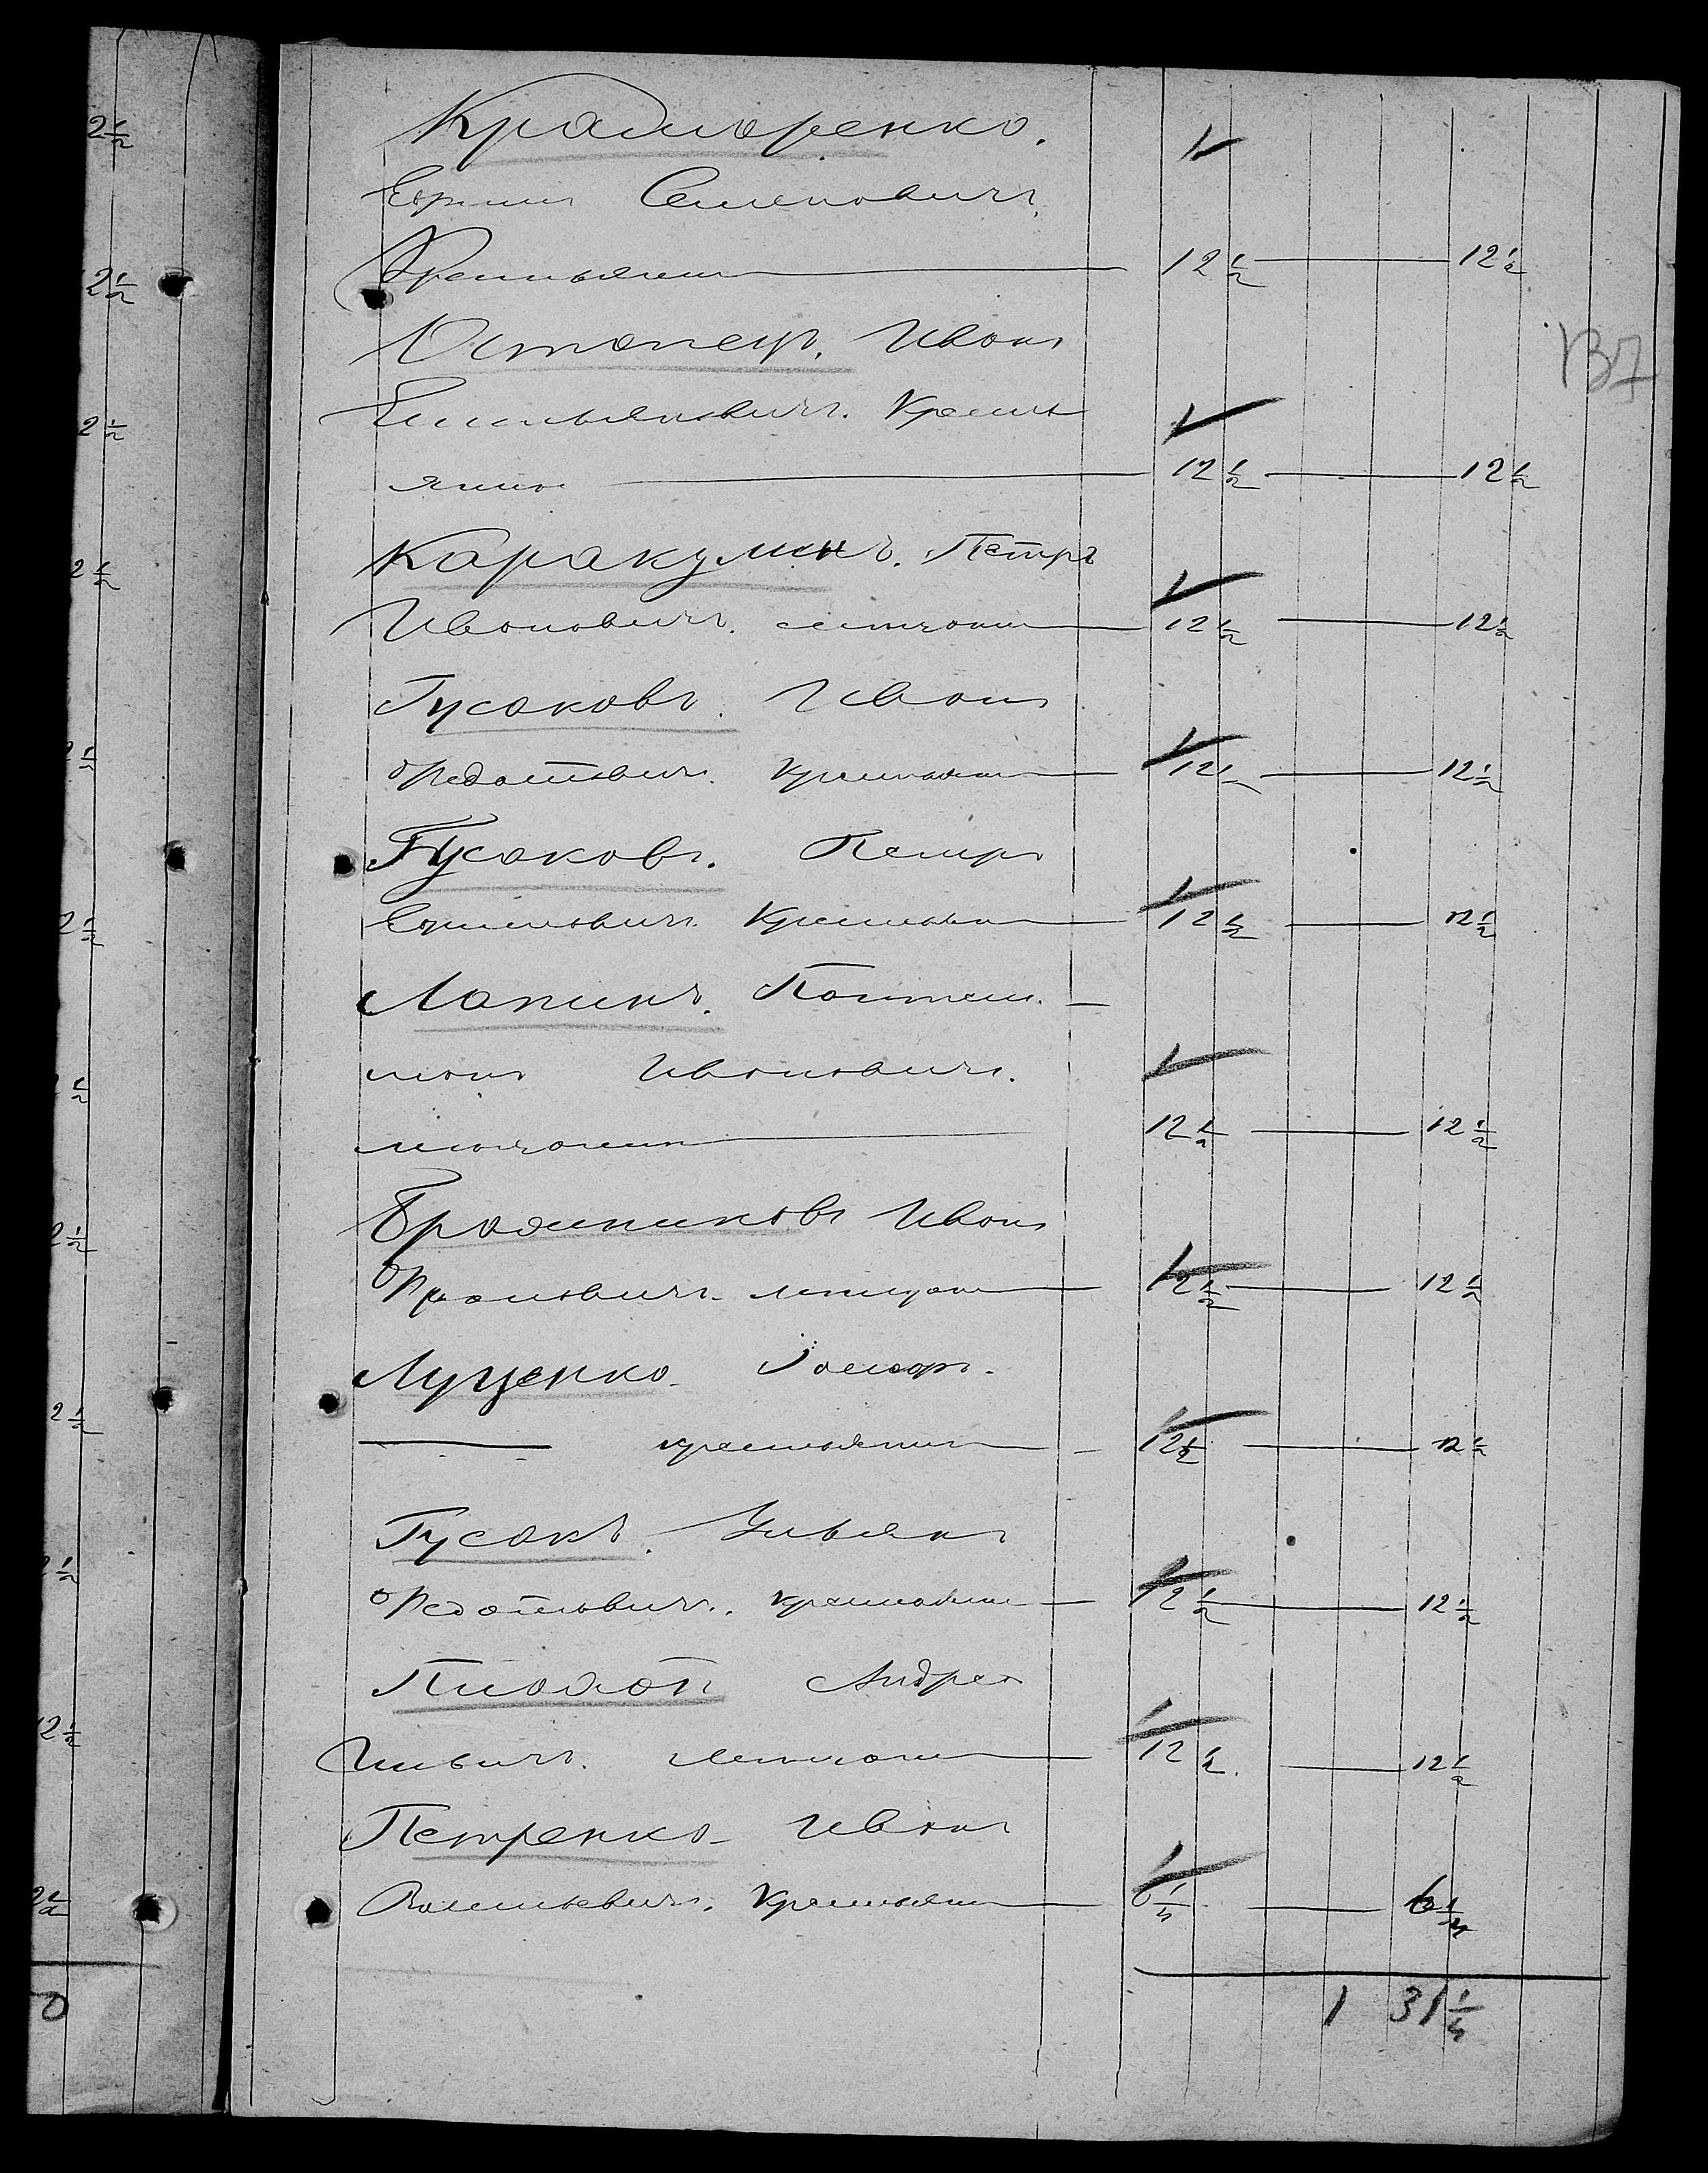 2 1/2
2 1/2
2 1/2
2 1/2
2 1/2
2 1/2
1/2
2 1/2
2 1/2
2 1/2
12 1/2
2 1/2
0
137
Семеновичъ.
Крестьянин 12 1/2 — 12 1/2
Остапецъ. Иванъ
Емельяновичъ. Кресть
янин 12 1/2 — 12 1/2
Каракулинъ. Петръ
Ивановичъ. мещанин 12 1/2 — 12 1/2
Гусаковъ. Иванъ
Федотовичъ. Крестьянин 12 1/2 — 12 1/2
Гусаковъ. Петръ
Крестьянин 12 1/2 — 12 1/2
Лапинъ. Пантели-
монъ Ивановичъ.
мещанин 12 1/2 — 12 1/2
Иванъ
мещанин 12 1/2 — 12 1/2
Луценко.
— крестьянин — 12 1/2 — 12 1/2
Гусакъ. Ульянъ
Федотовичъ. крестьянин 12 1/2 — 12 1/2
Андрей
Ильичъ. мещанин 12 1/2 — 12 1/2
Петренко Иванъ
Васильевичъ. Крестьянин 6 1/4 — 6 1/4
1 31 1/4